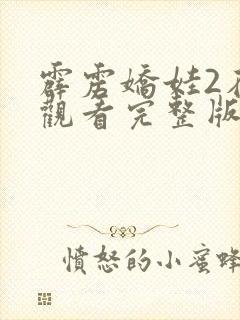 霹雳嬌娃2
觀看完整版
憤怒的小蜜蜂